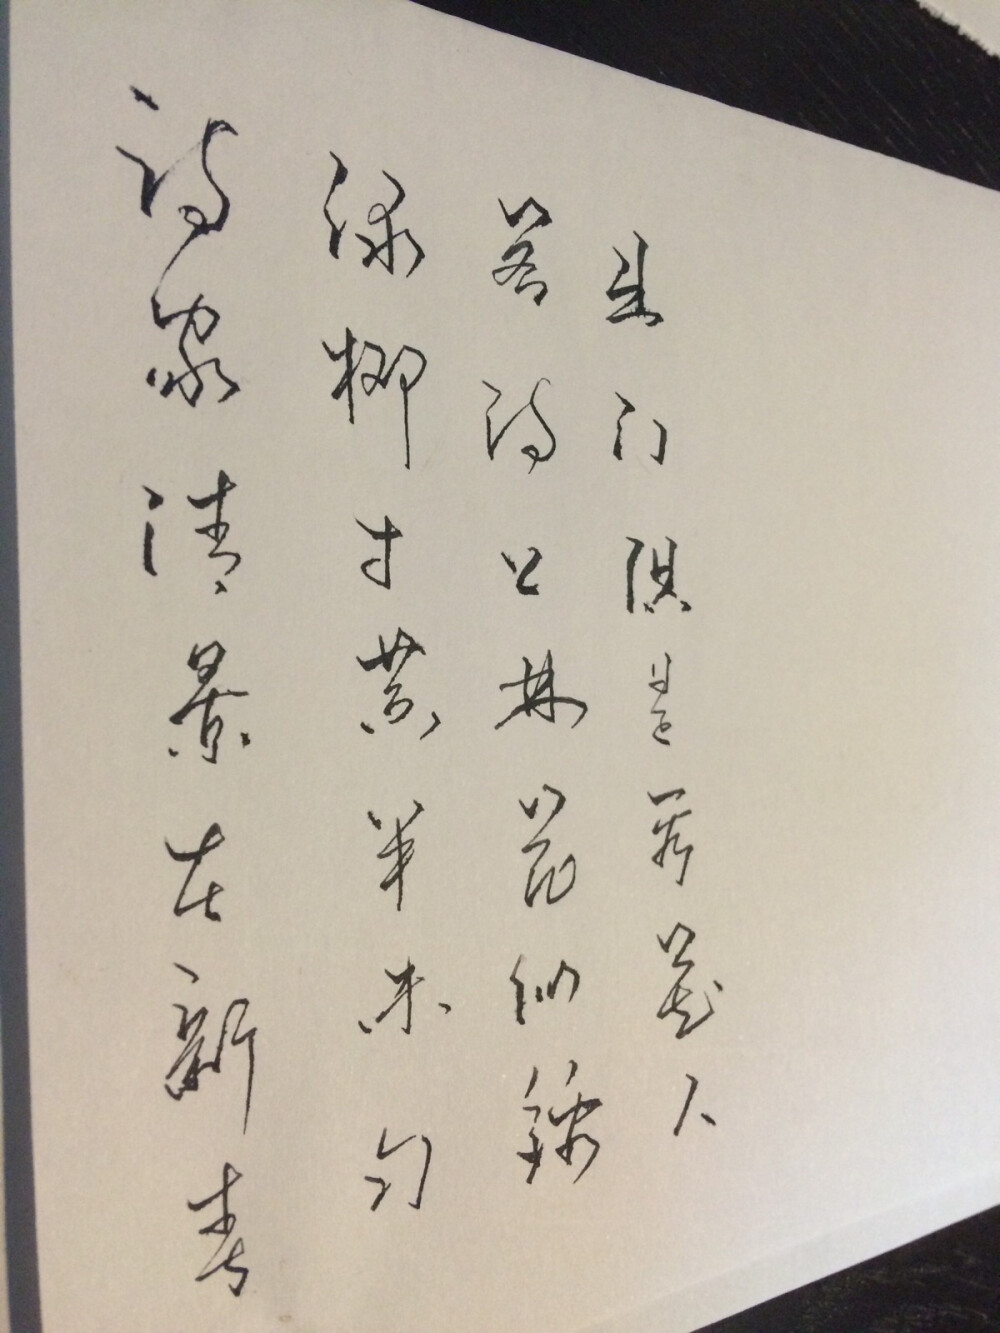 诗家清景在新春
绿柳才黄半未匀
若待上林花似锦
出门俱是看花人